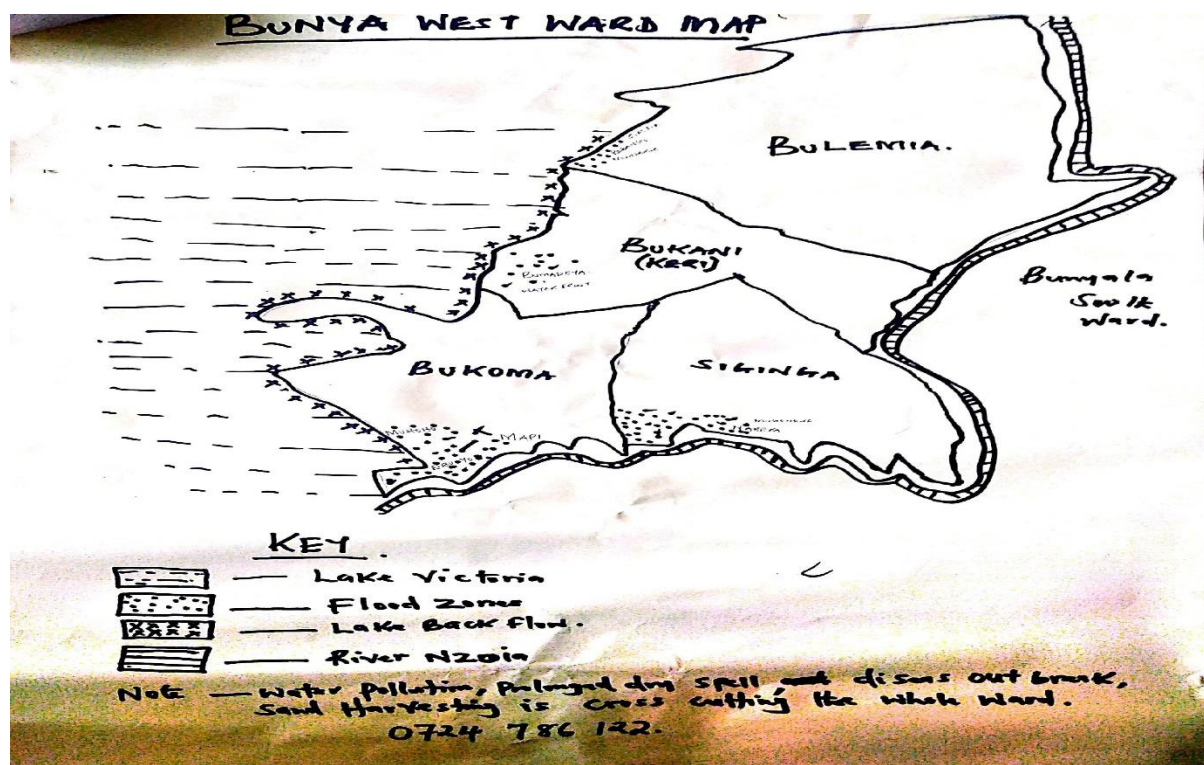 BUNYA WEST WARD MAP
BULEMIA.
BUKANI
(KERI)
BUMADEYA
WATER FRONT
Bunyala
South
Ward.
BUKOMA
SIGINGA
MAPI
KEY.
Lake Victoria
Flood Zones
Lake Back flow.
River Nzoia
NOTE — Water Pollution, Prolonged dry spell, diseas out break,
Sand Harvesting is cross cutting the whole ward.
0724 786 122.